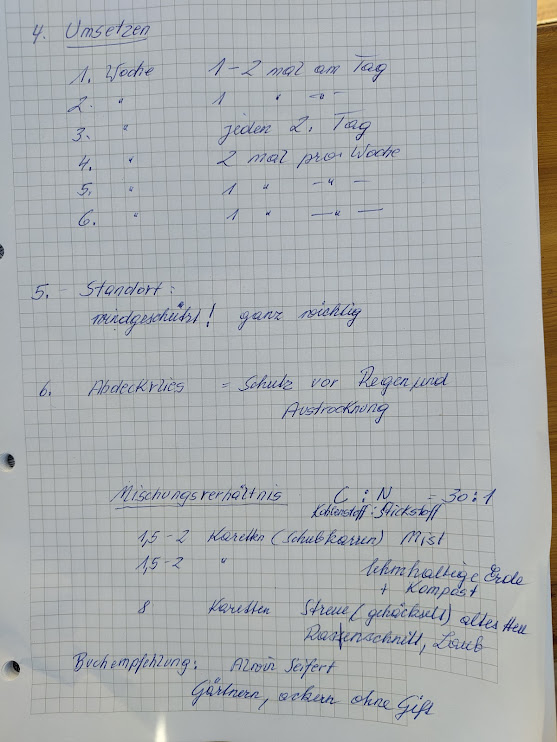 4. Umsetzen
1. Woche 1-2 mal am Tag
2. " 1 " -"-
3. " jeden 2. Tag
4. " 2 mal pro Woche
5. " 1 " -"-
6. " 1 " -"-
5. - Standort:
windgeschützt! ganz wichtig
6. Abdeckvlies = Schutz vor Regen und
Austrocknung
Mischungsverhältnis C : N = 30:1
Kohlenstoff : Stickstoff
1,5-2 Karetten (Schubkarren) Mist
1,5-2 " lehmhaltige Erde
+ Kompost
8 Karetten Streue (gehäckselt) altes Heu
Rasenschnitt, Laub
Buchempfehlung: Alwin Seifert
Gärtnern, ackern ohne Gift